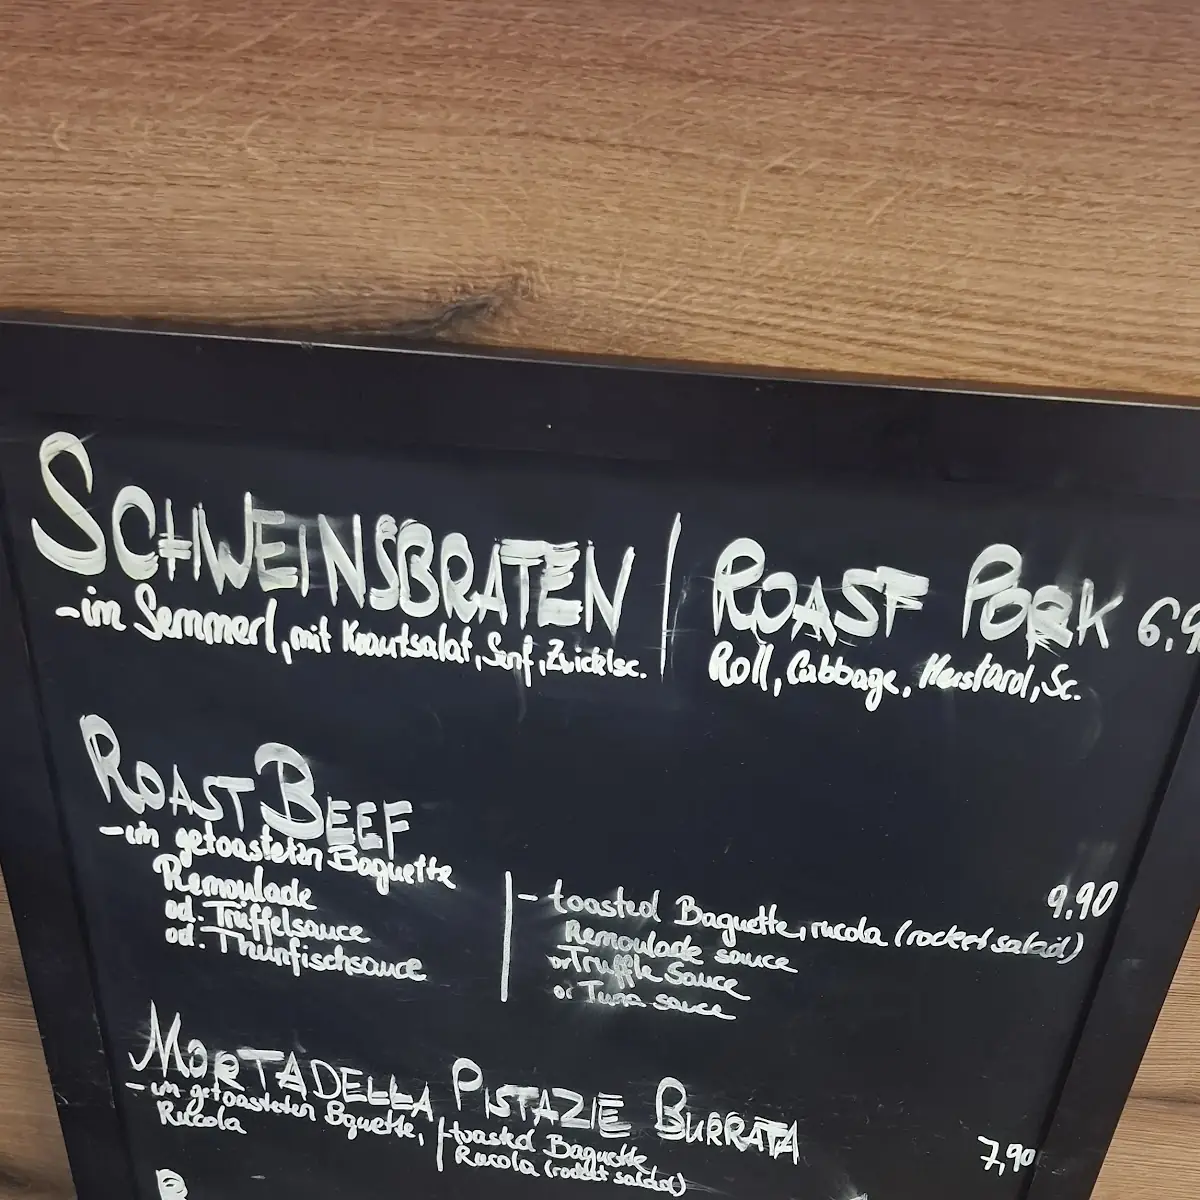 SCHWEINSBRATEN | ROAST PORK 6.9
-im Semmerl, mit Krautsalat, Senf, Zwicklsc. Roll, Cabbage, Mustard, Sc.
ROAST BEEF
-im getoasteten Baguette
Remoulade
od. Trüffelsauce
od. Thunfischsauce
9.90
- toasted Baguette, rucola (rocket salad)
Remoulade sauce
or Truffle Sauce
or Tuna sauce
MORTADELLA PISTAZIE BURRATA
- im getoasteten Bguette,
Rucola
toasted Baguette
Rucola (rocket salad)
7,90